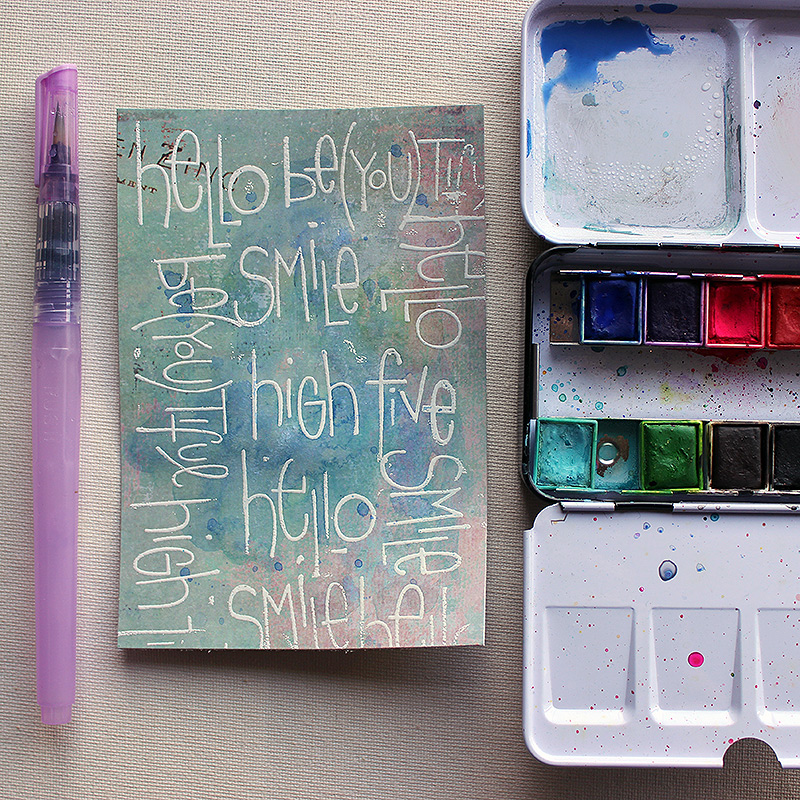 hello be(you)tiful
hello
smile
be(you)tiful
high five
smile
hello
high fi
smile hello